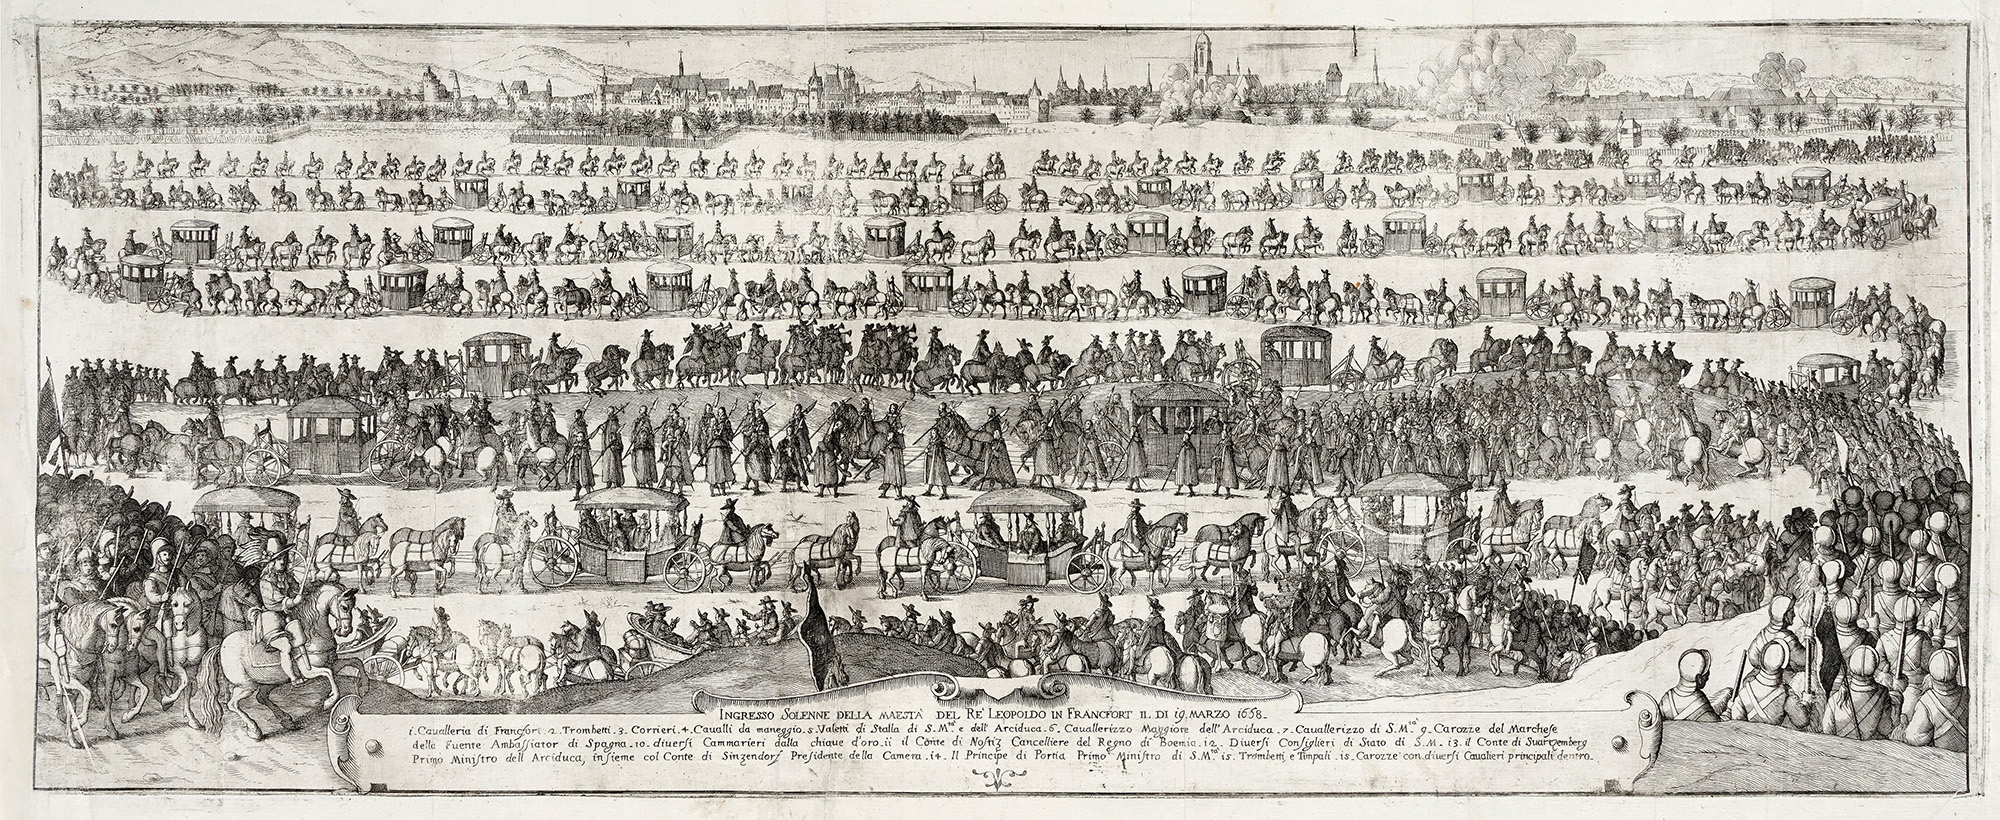 INGRESSO SOLENNE DELLA MAESTA' DEL RE' LEOPOLDO IN FRANCFORT IL DI 19. MARZO 1658.
1. Caualleria di Francfort. 2. Trombetti. 3. Corrieri. 4. Caualli da maneggio. 5. Valetti di Stalla di S. M.tà e dell' Arciduca. 6. Cauallerizzo Maggiore dell' Arciduca. 7. Cauallerizzo di S. M.tà 9. Carozze del Marchese
della Fuente Ambassiator di Spagna. 10. diuersi Cammarieri dalla chiaue d'oro. 11 il Conte di Nostiz Cancelliere del Regno di Boemia. 12. Diuersi Consiglieri di Stato di S. M. 13. il Conte di Suartzemberg
Primo Ministro dell Arciduca, insieme col Conte di Sinzendorf Presidente della Camera. 14. Il Principe di Portia Primo Ministro di S. M.tà 15. Trombetti e Timpali. 15. Carozze con diuersi Caualieri principali dentro.